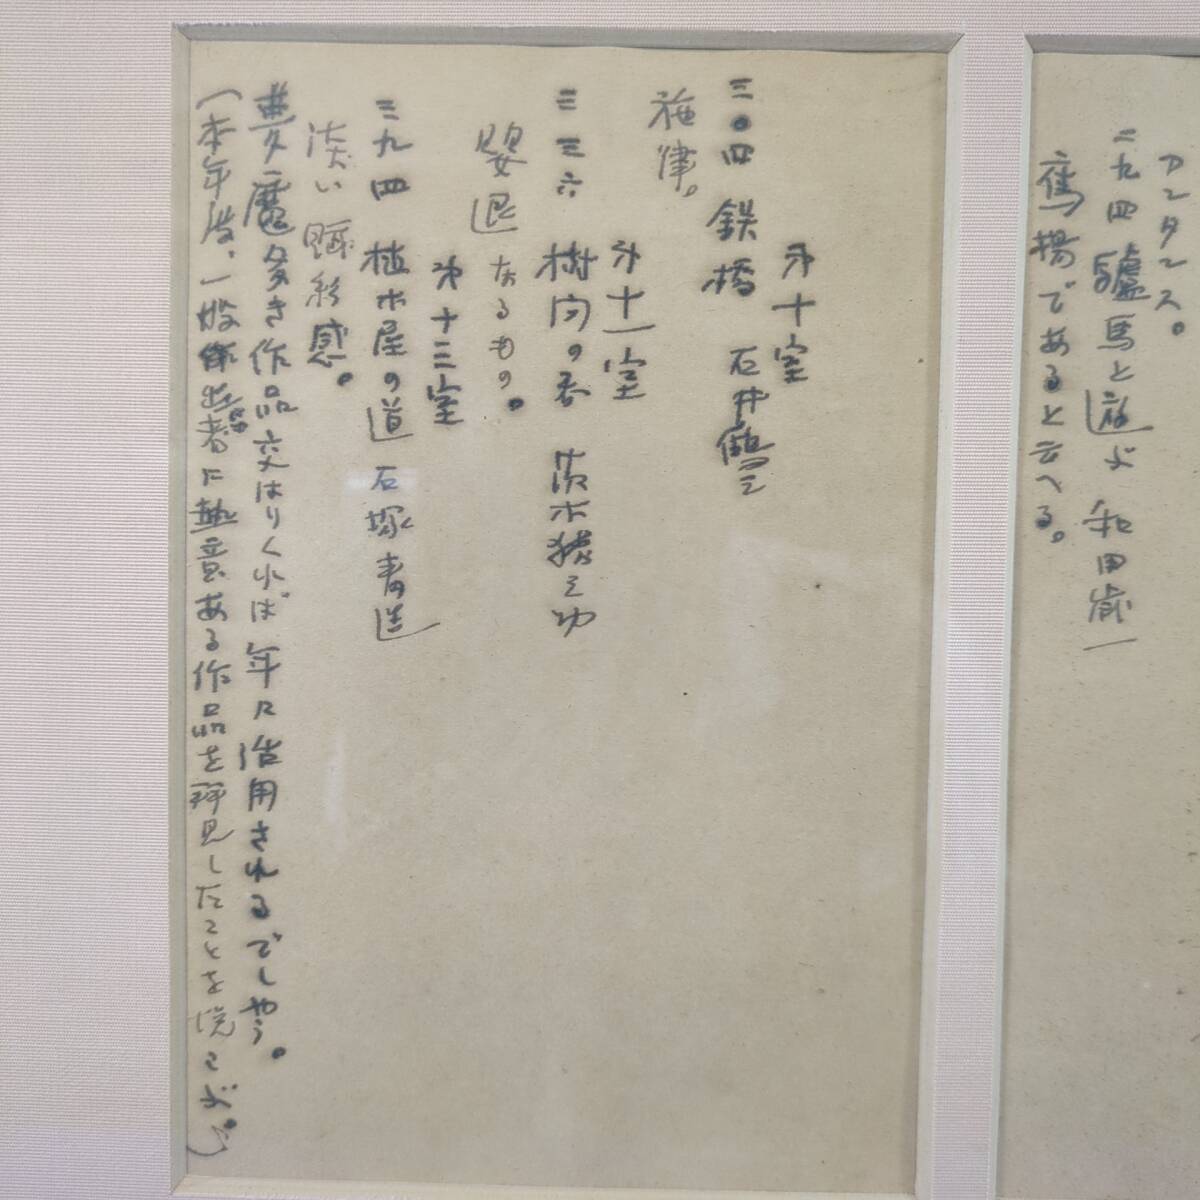 アンタンス。
二九四 驢馬と遊ぶ 和田歳一
鷹揚であると云へる。
才十室
三〇四 鉄橋 石井鶴三
旋律。
才十一室
三三六 樹間の春 茨木猪之功
婴退なるもの。
才十三室
三九四 植木屋の道 石塚青造
淡い 彩感。
夢魔多き作品交はりくれば年に活用されるでしやう。
(本年度、一般 者に熱意ある作品を拝見したことを悦こぶ。)